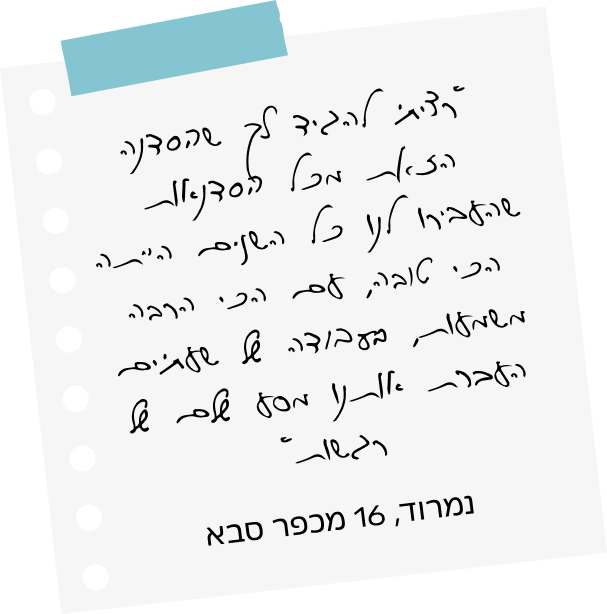 "רציתי להגיד לך שהסדנה
הזאת מכל הסדנאות
שהעבירו לנו כל השנים הייתה
הכי טובה, עם הכי הרבה
משמעות, בעבודה של שעתיים
העברת אותנו מסע שלם של
רגשות"
נמרוד, 16 מכפר סבא